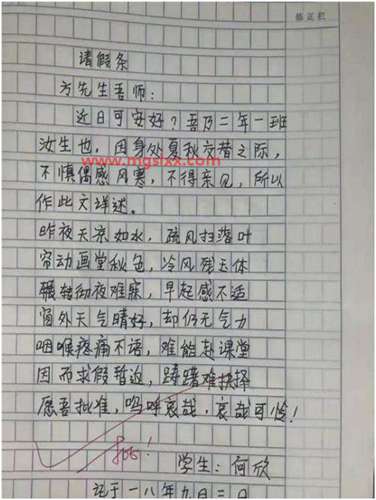 修正栏
请假条
方先生吾师：
近日可安好？吾乃二年一班
汝生也，因身处夏秋交替之际，
www.mgslxx.com
不慎偶感风寒，不得亲见，所以
作此文详述。
昨夜天凉如水，疏风扫落叶
帘动画堂秋色，冷风残玉体
辗转彻夜难寐，早起感不适
窗外天气晴好，却仍无气力
咽喉疼痛不语，难能赴课堂
因而求假暂避，踌躇难抉择
愿吾批准，呜呼哀哉，哀哉可怜！
学生：何欣
记于一八年九月二日